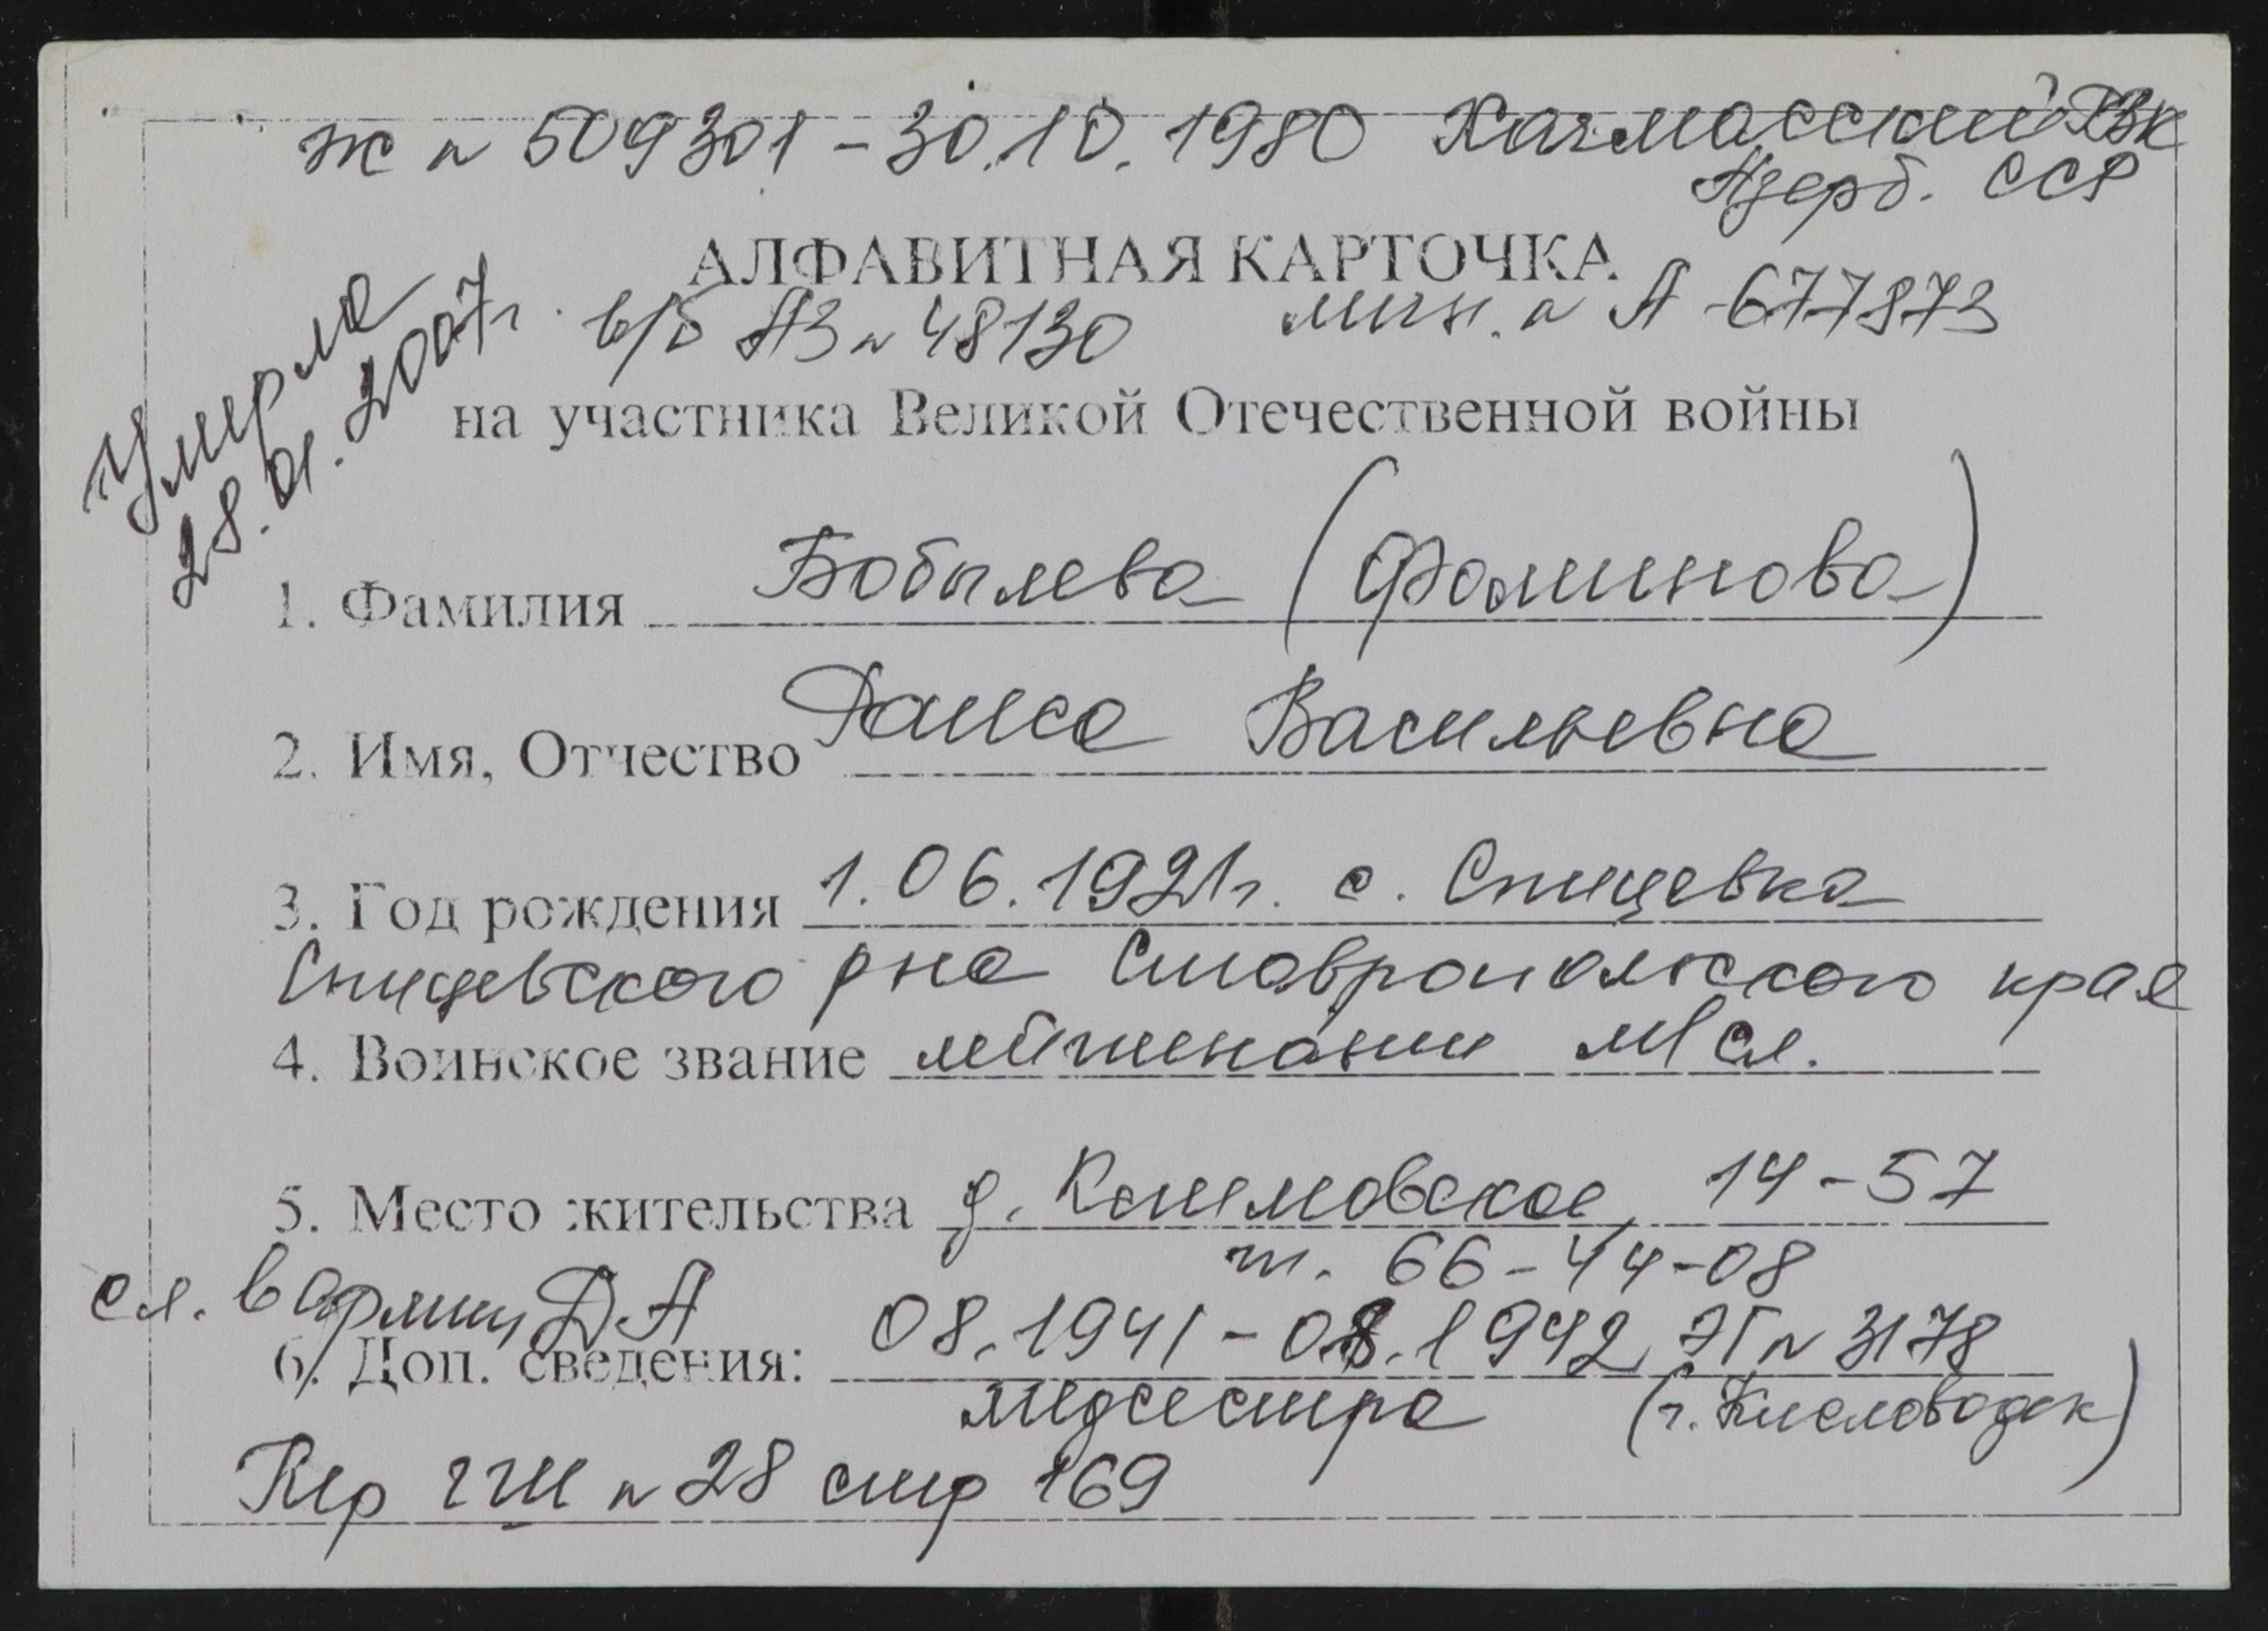 ж № 509301 - 30.10.1980 Хачмасский РВК
Азерб. ССР
АЛФАВИТНАЯ КАРТОЧКА
в/б АЗ № 48130 мин. № А - 677873
на участника Великой Отечественной войны
Умерла
28.01.2007г
1. Фамилия Бобылева (Фоминова)
2. Имя, Отчество Раиса Васильевна
3. Год рождения 1.06.1921г. с. Спицевка
Спицевского рна Ставропольского края
4. Воинское звание лейтенант м/сл.
5. Место жительства 14-57
т. 66-44-08
сл. в армии ДА
6. Доп. сведения: 08.1941 - 08.1942 ЭГ № 3178
медсестра (г. Кисловодск)
№ 28 стр 169